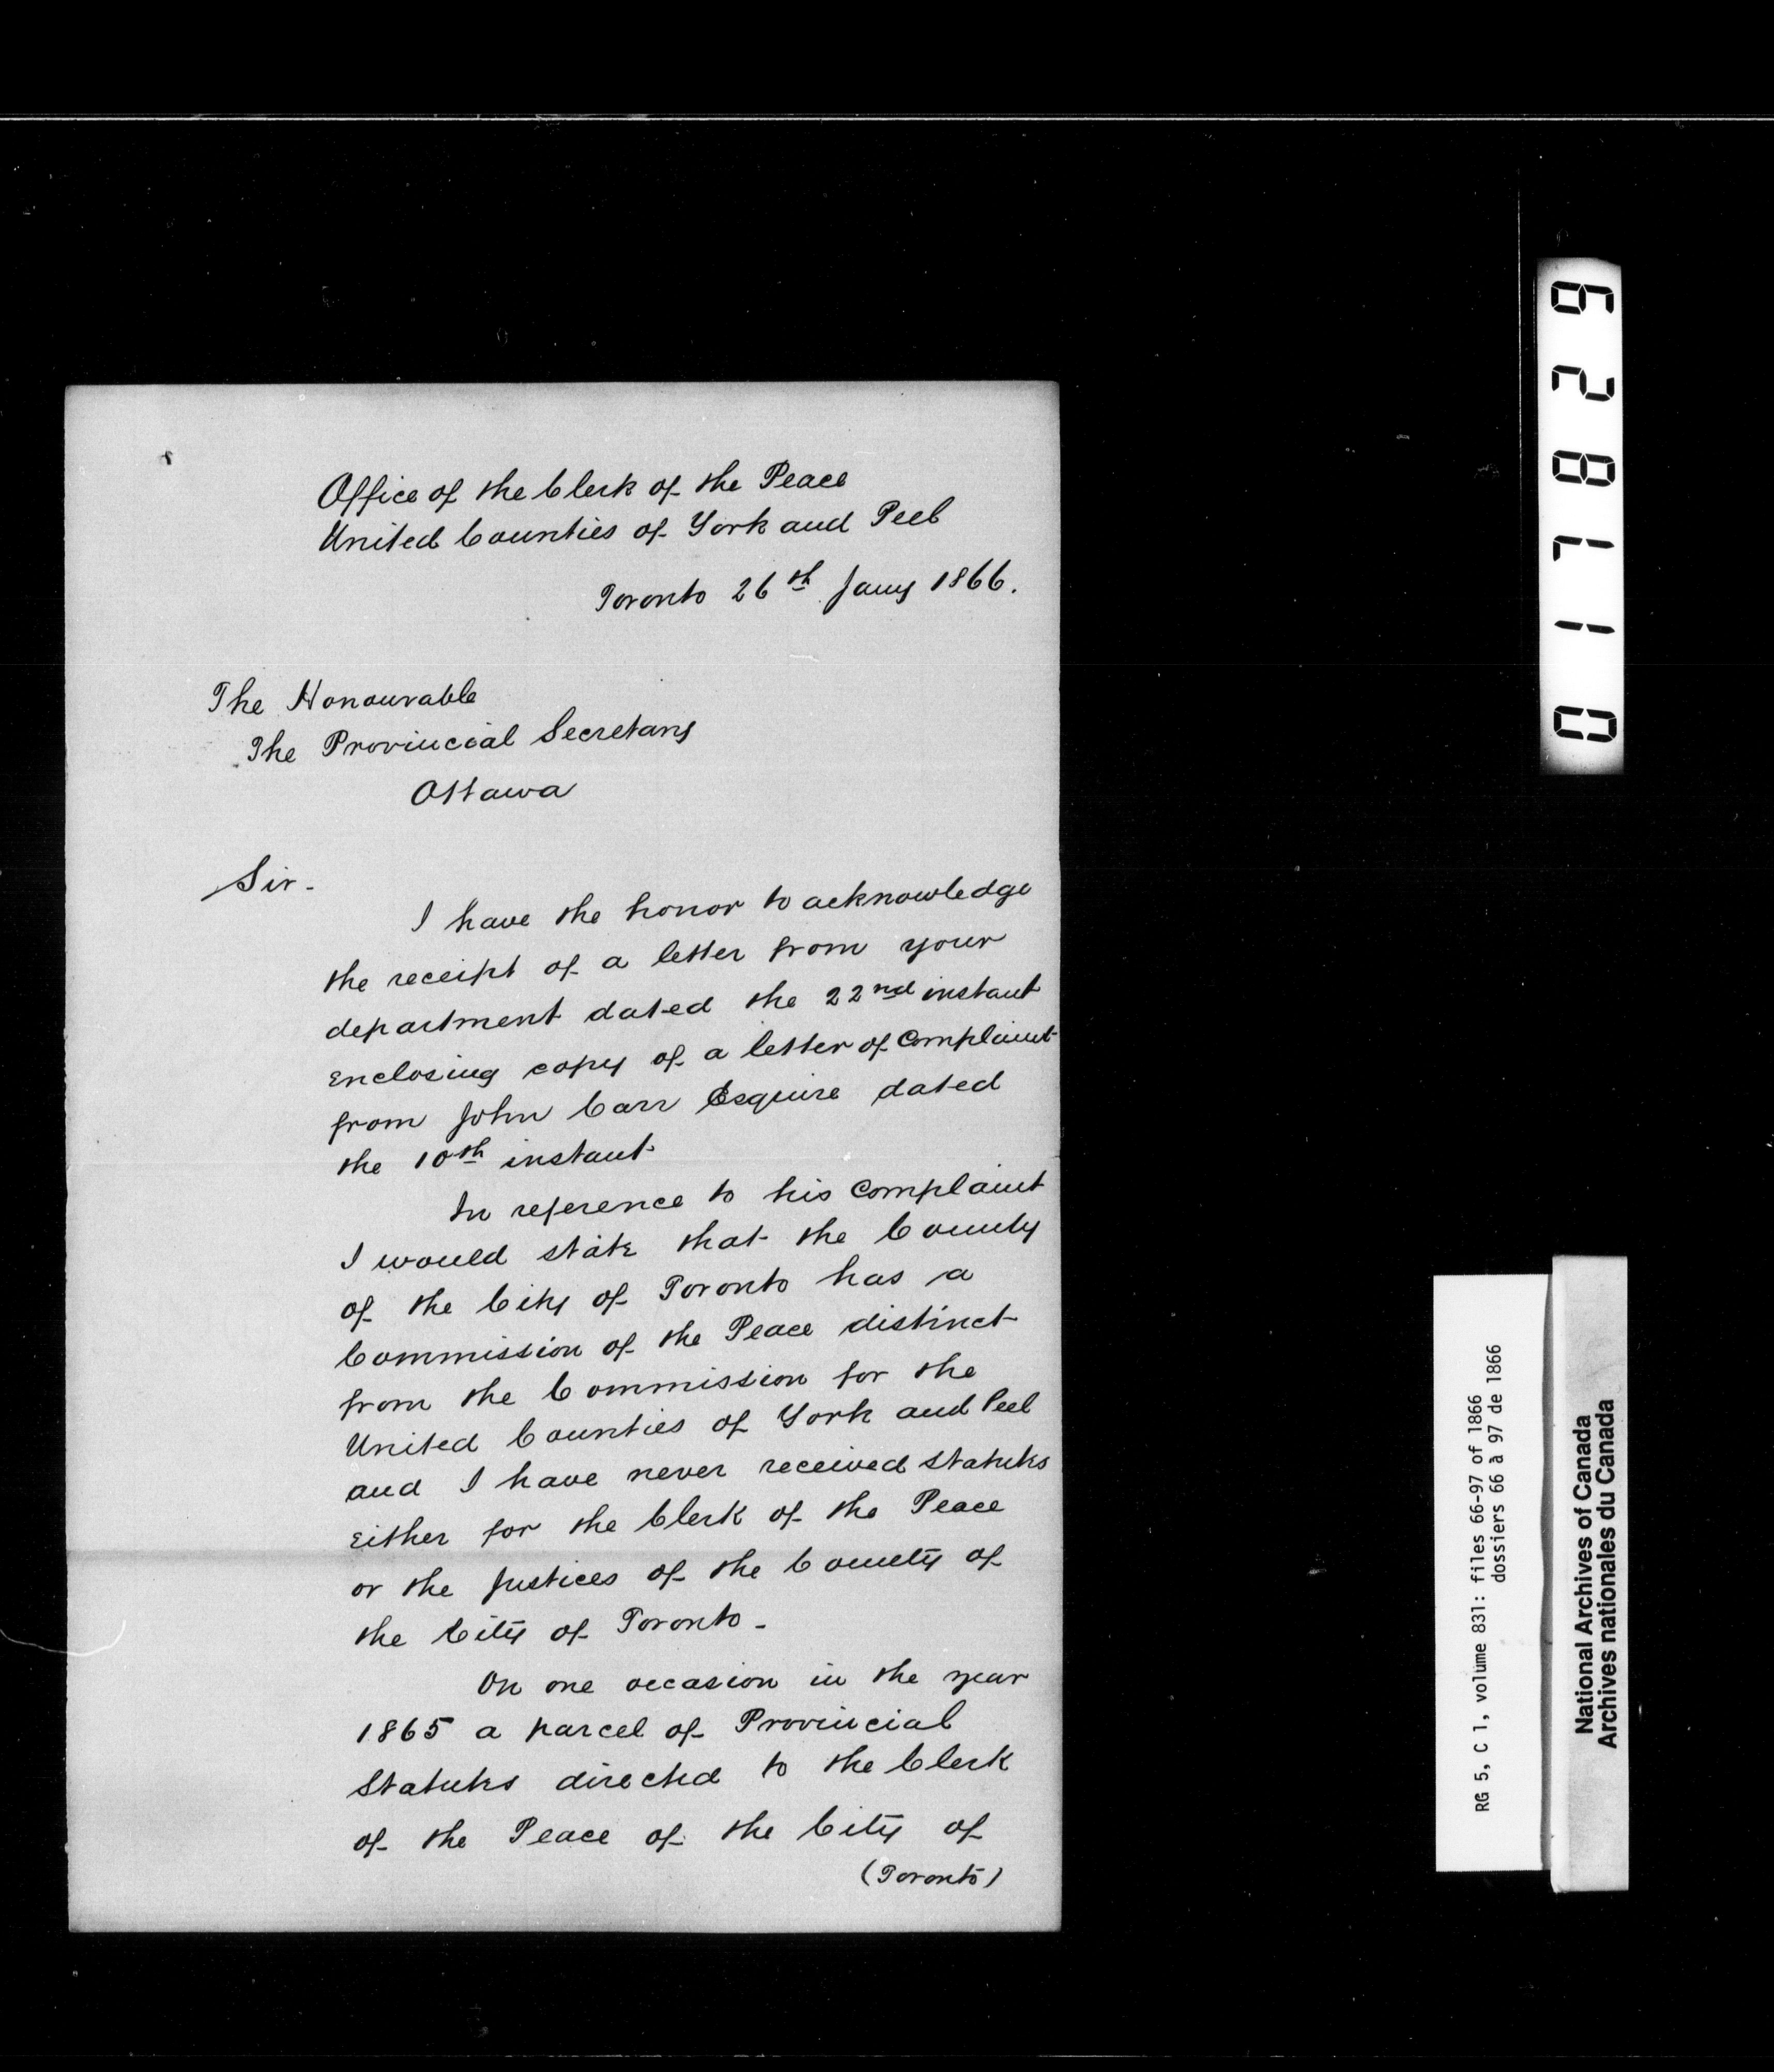 Office of the Clerk of the Peace
United Counties of York and Peel
Toronto 26th Jany 1866.
The Honourable
The Provincial Secretary
Ottawa
Sir-
I have the honor to acknowledge
the receipt of a letter from your
department dated the 22nd instant
enclosing copy of a letter of Complaint
from John Carr Esquire dated
the 10th instant
In reference to his Complaint
I would state that the County
of the City of Toronto has a
Commission of the Peace distinct
from the Commission for the
United Counties of York and Peel
and I have never received Statutes
either for the Clerk of the Peace
or the Justices of the County of
the City of Toronto-
On one occasion in the year
1865 a parcel of Provincial
Statutes directed to the Clerk
of the Peace of the City of
(Toronto)
017829
RG 5, C 1, volume 831: files 66-97 of 1866
dossiers 66 à 97 de 1866
National Archives of Canada
Archives nationales du Canada